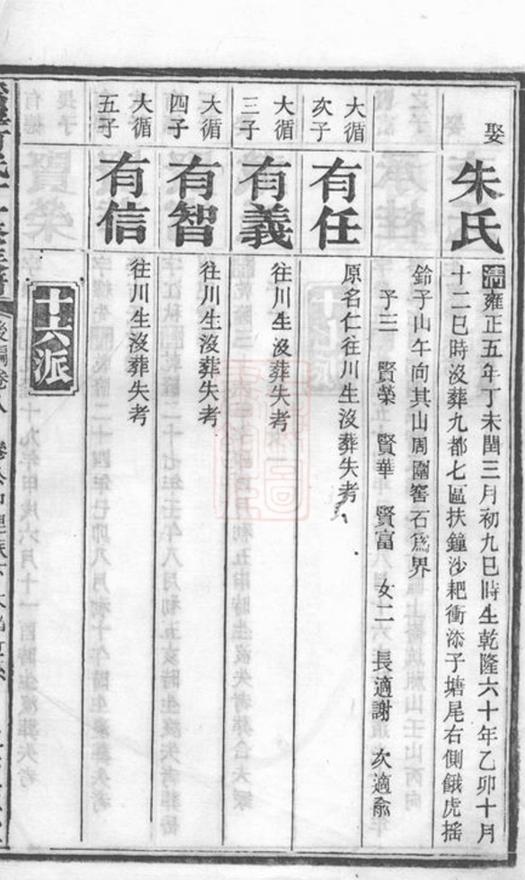 娶
朱氏
清雍正五年丁未閏三月初九巳時生乾隆六十年乙卯十月
十二巳時沒葬九都七區扶鐘沙耙衝漆子塘尾右側餓虎搖
鈴子山午向其山周圍窖石為界
子三 賢榮 賢華 賢富 女二 長適謝 次適俞
大循
次子
有任
原名仁往川生沒葬失考
大循
三子
有義
往川生沒葬失考
大循
四子
有智
往川生沒葬失考
大循
五子
有信
往川生沒葬失考
十六派
後編卷八